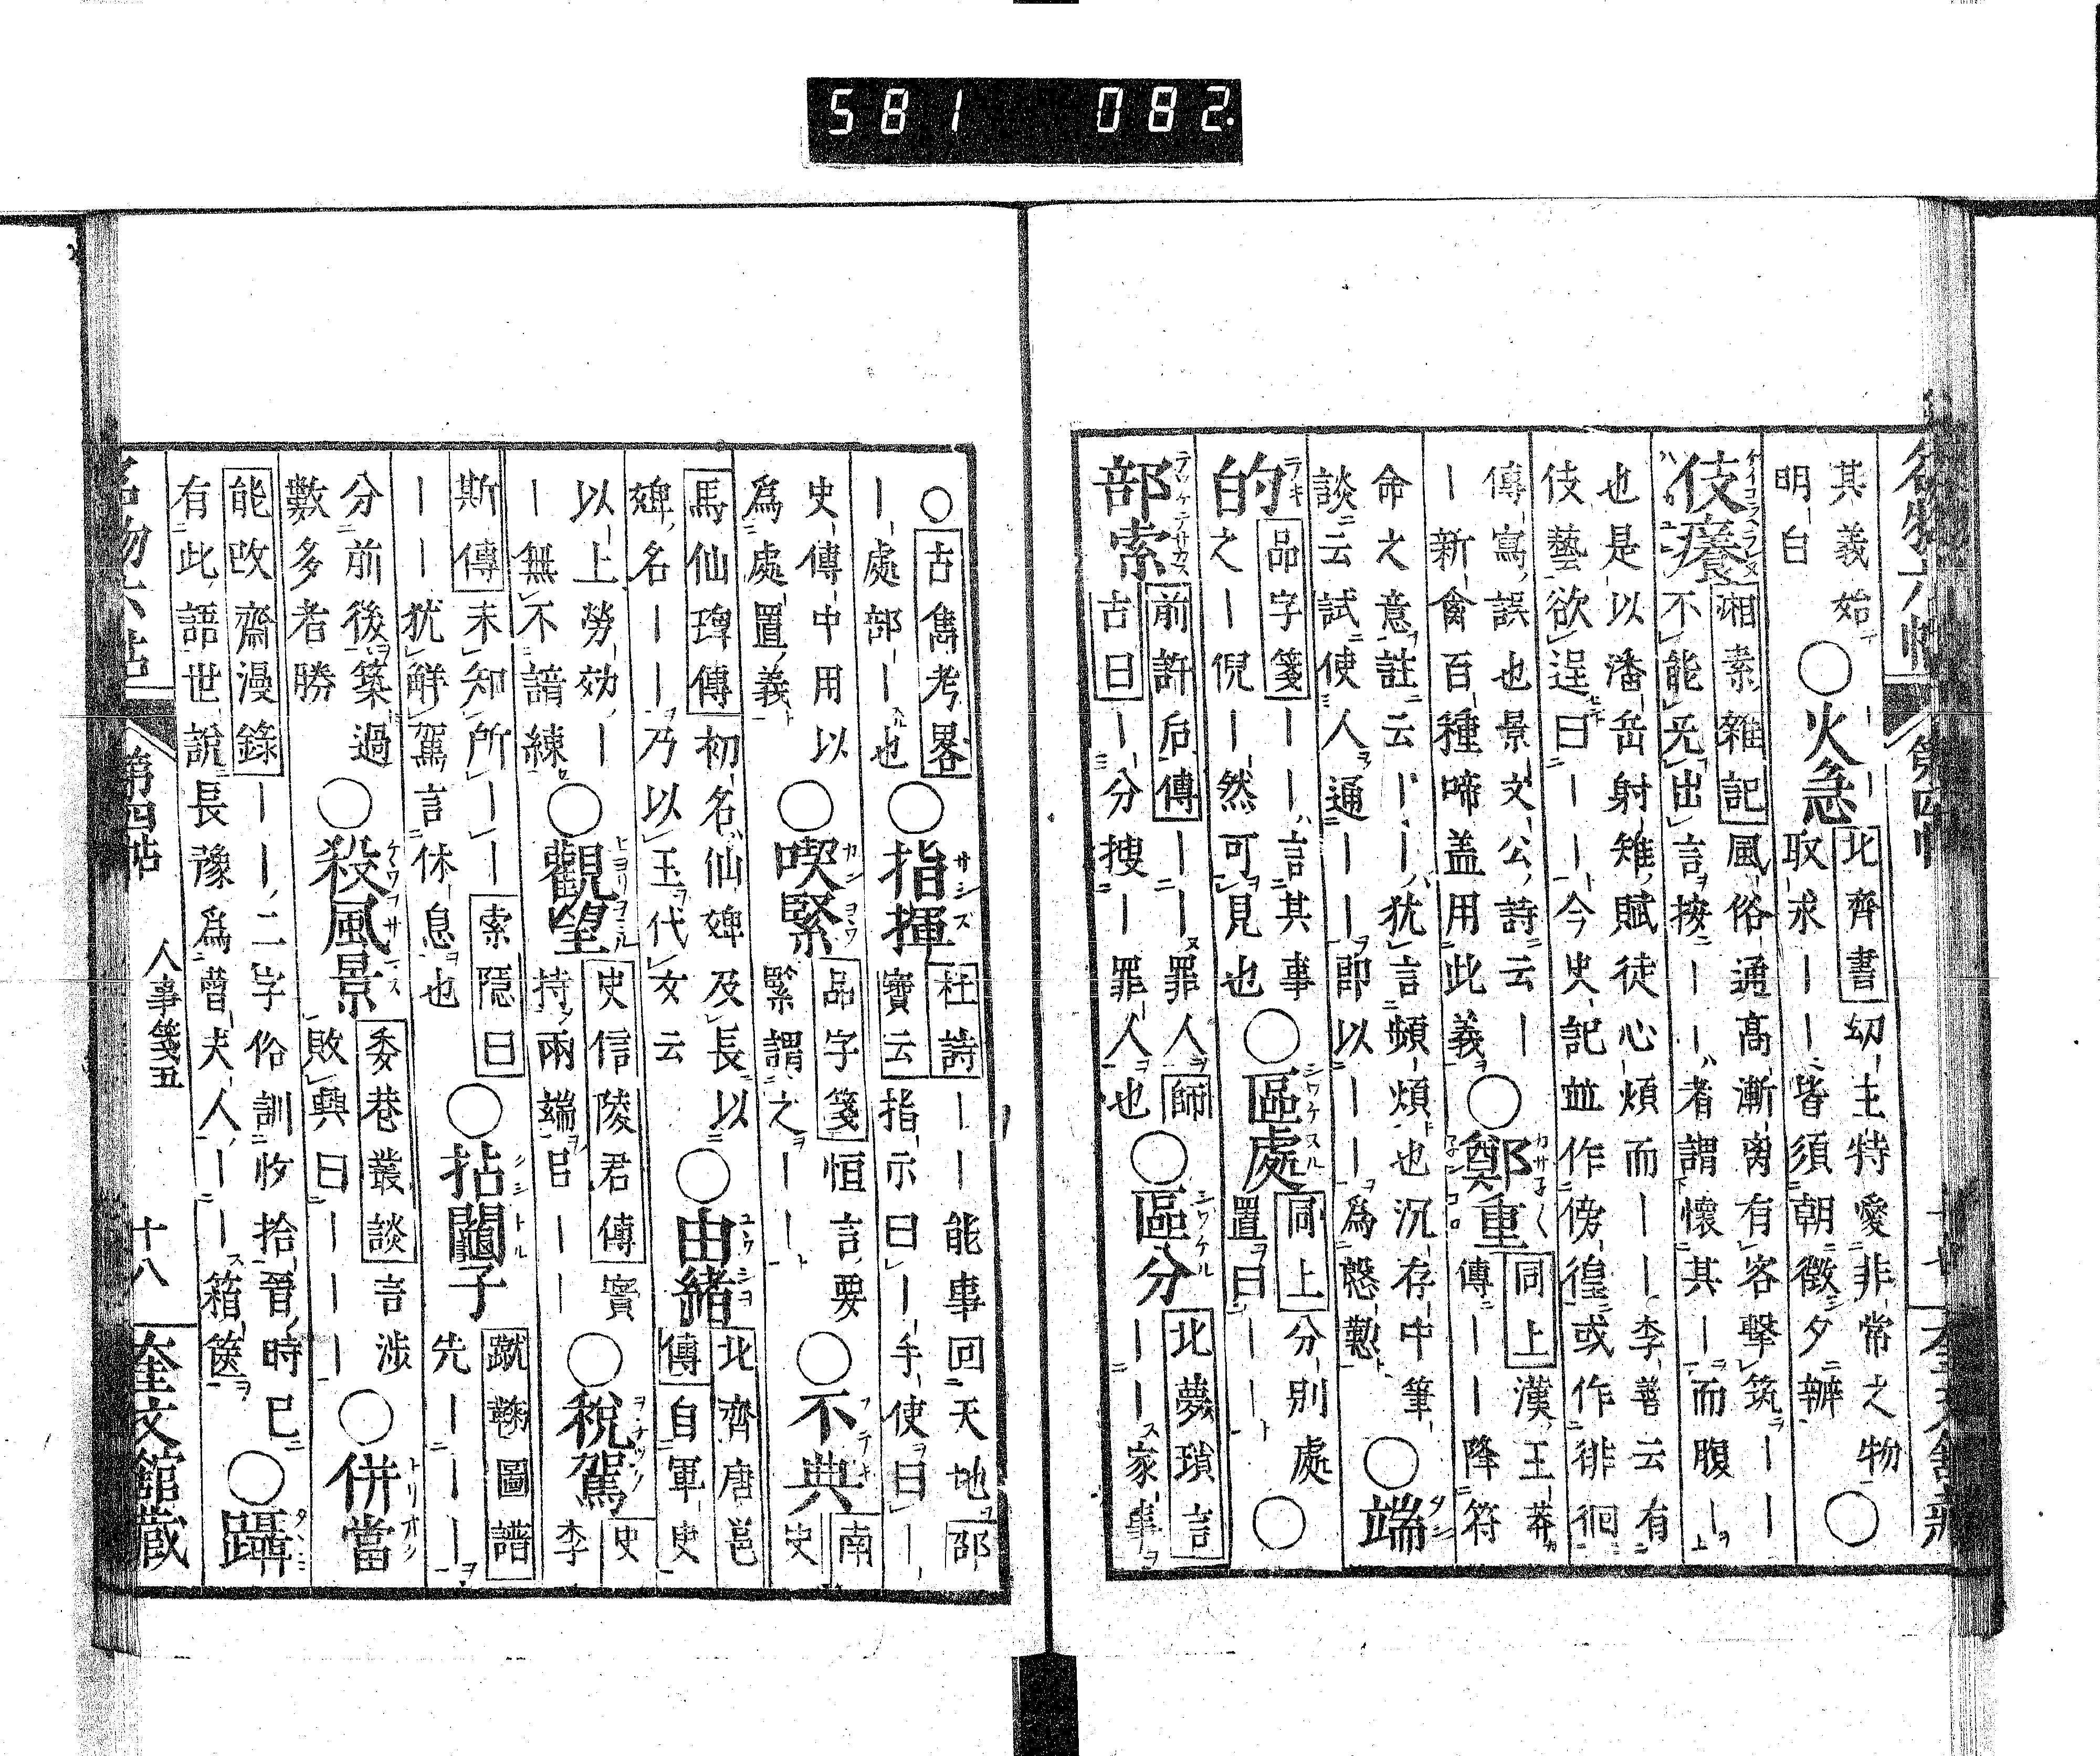 581 082.
其義始
明白
○火急
北齊書幼主特愛非常之物
取求｜｜皆須朝徵夕辦
○
伎癢
湘素雜記風俗通高漸离有客擊筑｜｜
不能无出言按｜｜者謂懷其｜而腹｜
也是以潘岳射雉賦徒心煩而｜｜李善云有
伎藝欲逞曰｜｜今史記並作傍徨或作徘徊
傳寫誤也景文公詩云｜
｜新禽百種啼盖用此義
○鄭重
同上漢王莽
傳｜｜降符
命之意註云｜｜猶言頻煩也沉存中筆
談云試使人通｜｜即以｜｜為慇懃
○端
的
品字箋｜｜言其事
之｜倪｜然可見也
○區處
同上分別處
置曰｜｜
○
部索
前許后傳｜｜罪人師
古曰｜分搜｜罪人也
○區分
北夢瑣言
｜｜家事
○古雋考畧
｜處部｜也
○指揮
杜詩｜｜能事回天地邵
寶云指示曰｜手使曰｜
史傳中用以
為處置義
○喫緊
品字箋恒言要
緊謂之｜｜
○不典
南
史
馬仙琕傳初名仙婢及長以
婢名｜｜乃以玉代女云
○由緒
北齊唐邕
傳自軍吏
以上勞効｜
｜無不諳練
○觀望
史信陵君傳實
持兩端㠯｜｜
○稅駕
史
李
斯傳未知所｜｜索隱曰
｜｜猶解駕言休息也
○拈鬮子
蹴鞠圖譜
先｜｜｜
分前後築過
數多者勝
○殺風景
委巷叢談言涉
敗興曰｜｜｜
○併當
能改齋漫錄｜｜二字俗訓收拾晉時已
有此語世說長豫為曹夫人｜｜箱篋
○躡
第四帖
人事箋五
十八
奎文館藏